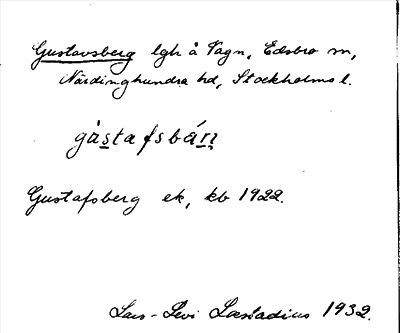 Gustavsberg lgh å Vagn, Edsbro sn,
Närdinghundra hd, Stockholms l.
gùstafsbárı̣
Gustafsberg ek, kb 1922.
Lars-Levi Læstadius 1932.